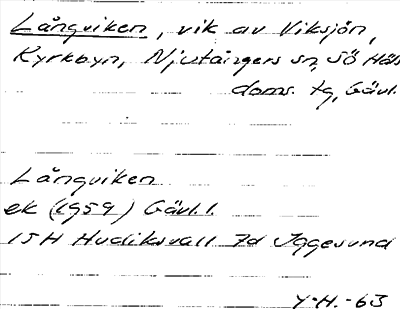 Långviken, vik av Viksjön,
Kyrkbyn, Njutångers sn, SÖ Häls
doms. tg, Gävl.
Långviken
ek (1959) Gävl. l.
15H Hudiksvall 7d Iggesund
Y-H.-63